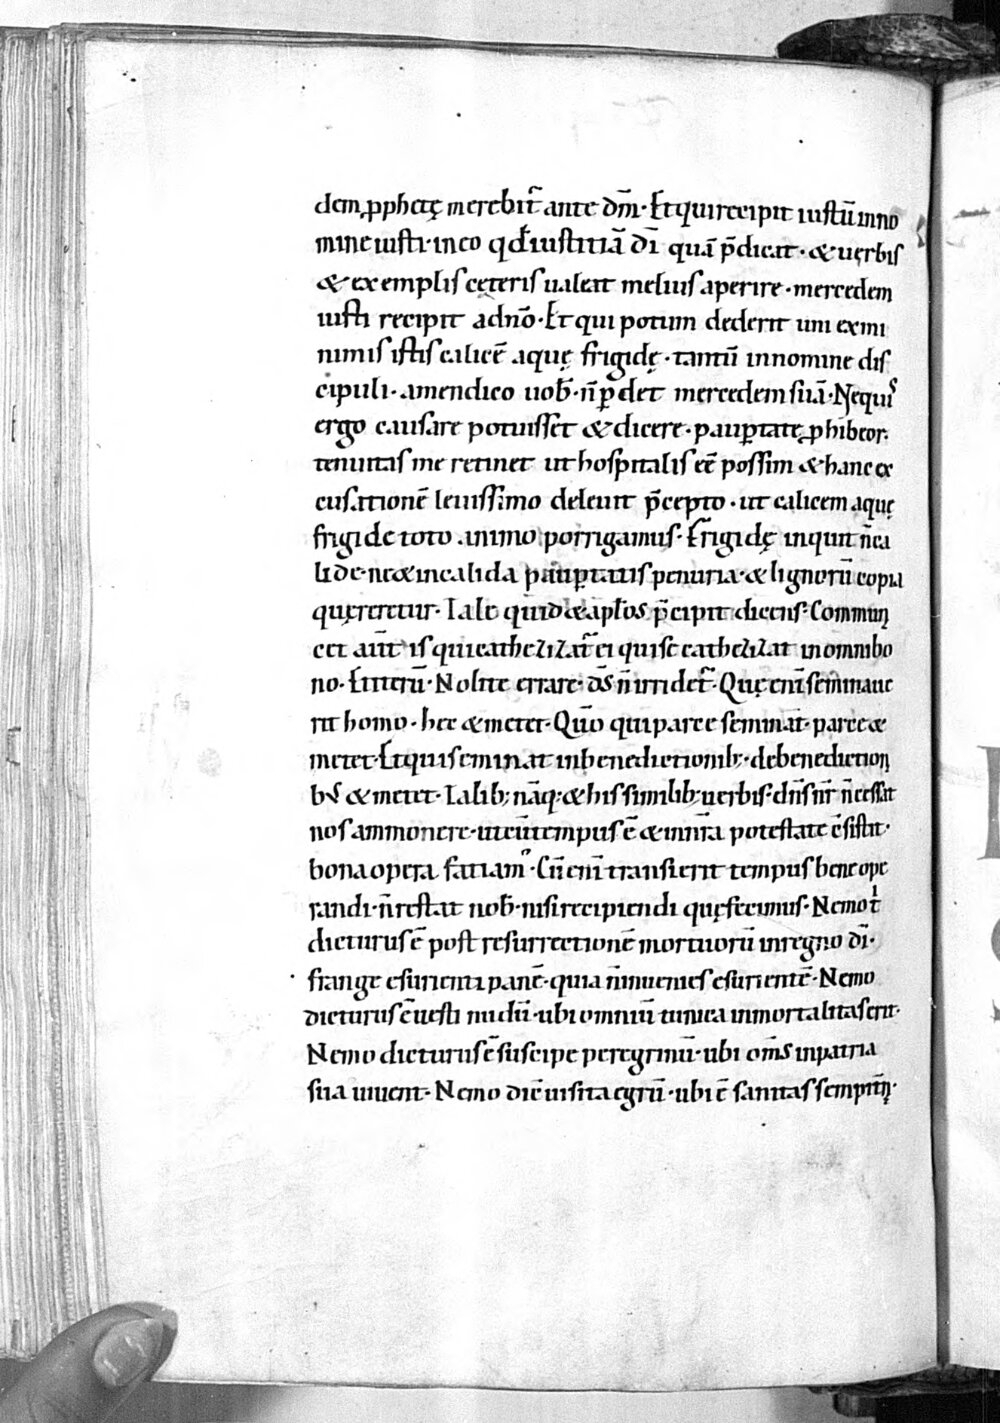 dem ꝓphetę merebit᷑ ante dm̄· Et qui recipit iustū inno
mine iusti· in eo qđ iustitiā dī quā p̄dicat· & uerbis
& exemplis ceteris ualeat melius aperire· mercedem
iusti recipit ad nō· Et qui potum dederit uni ex mi
nimis istis calicē aquę frigidę· tantū in nomine dis
cipuli· amen dico uob̄· n̄ ꝑdet mercedem suā· Ne quis
ergo causare potuisset & dicere· pauꝑtate ꝓhibeor·
tenuitas me retinet ut hospitalis eē possim & hanc ex
cusationē leuissimo deleuit p̄cepto· ut calicem aquę
frigide toto animo porrigamus· Frigidę inquit n̄ ca
lide· ne & in calida pauꝑtatis penuria· & lignorū copia
quęreretur· Tale quid & apl̄os p̄cipit dicens· Commun
cet aūt is qui cathezizat᷑ ei qui se cathezizat in omnibo
no· Et iterū· Nolite errare· d̄s n̄ irridet᷑· Quę enī seminaue
rit homo· hec & metet· Quō qui parce seminat· parce &
metet· Et qui seminat in benedictionib;· de benediction
bꝰ & metet· Talib; nāq;· & his similib; uerbis· dn̄s nr̄ n̄ cessat
nos ammonere· ut cū tempus ē & in nr̄a potestate c̄sistit·
bona opera faciamꝰ· Cū enī transierit tempus bene ope
randi· n̄ restat nob̄· nisi recipiendi quę fecimus· Nemo t̄
dicturus ē post resurrectionē mortuorū in regno dī·
frange esurienti panē· quia n̄ inuenies esurientē· Nemo
dicturus ē uesti nudū· ubi omniū tunica inmortalitas erit·
Nemo dicturus ē suscipe peregrinū· ubi om̄s in patria
sua uiuent· Nemo dic̄ uisita egrū· ubi ē sanitas sempit̄n·